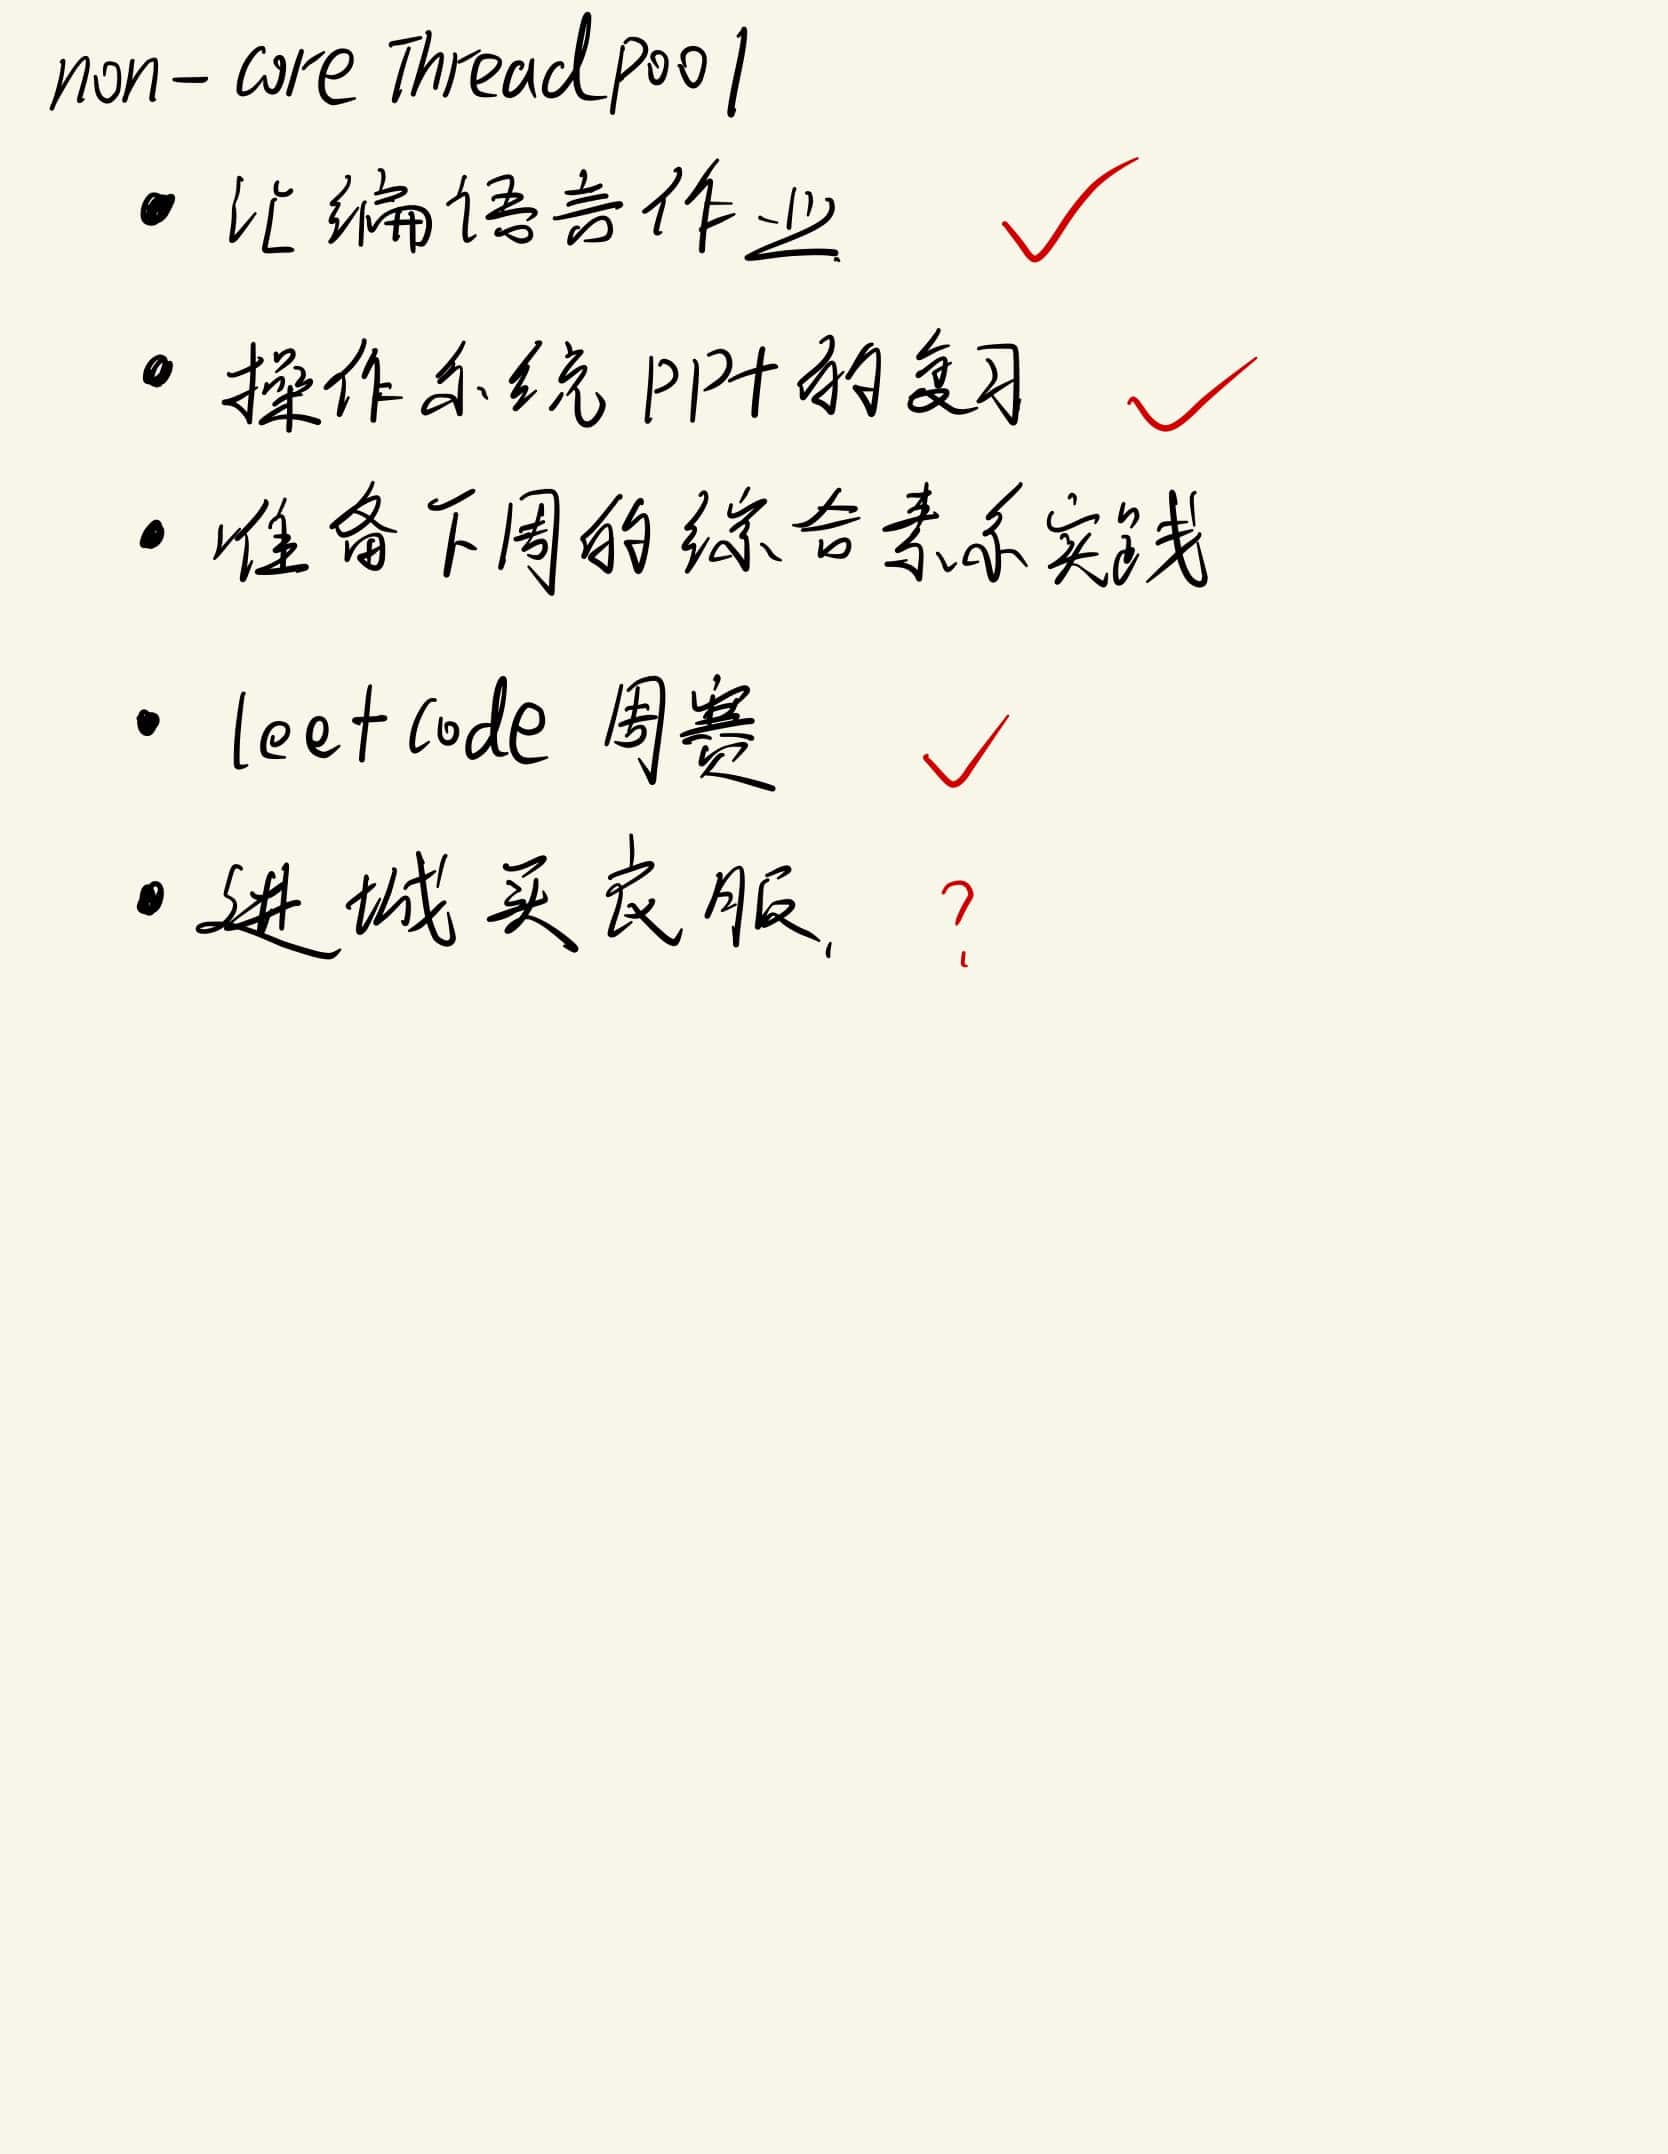 non-core Threadpool
• 汇编语言作业 ✓
• 操作系统PPt的复习 ✓
• 准备下周的综合素系实践
• leetcode 周赛 ✓
• 进城买衣服. ?